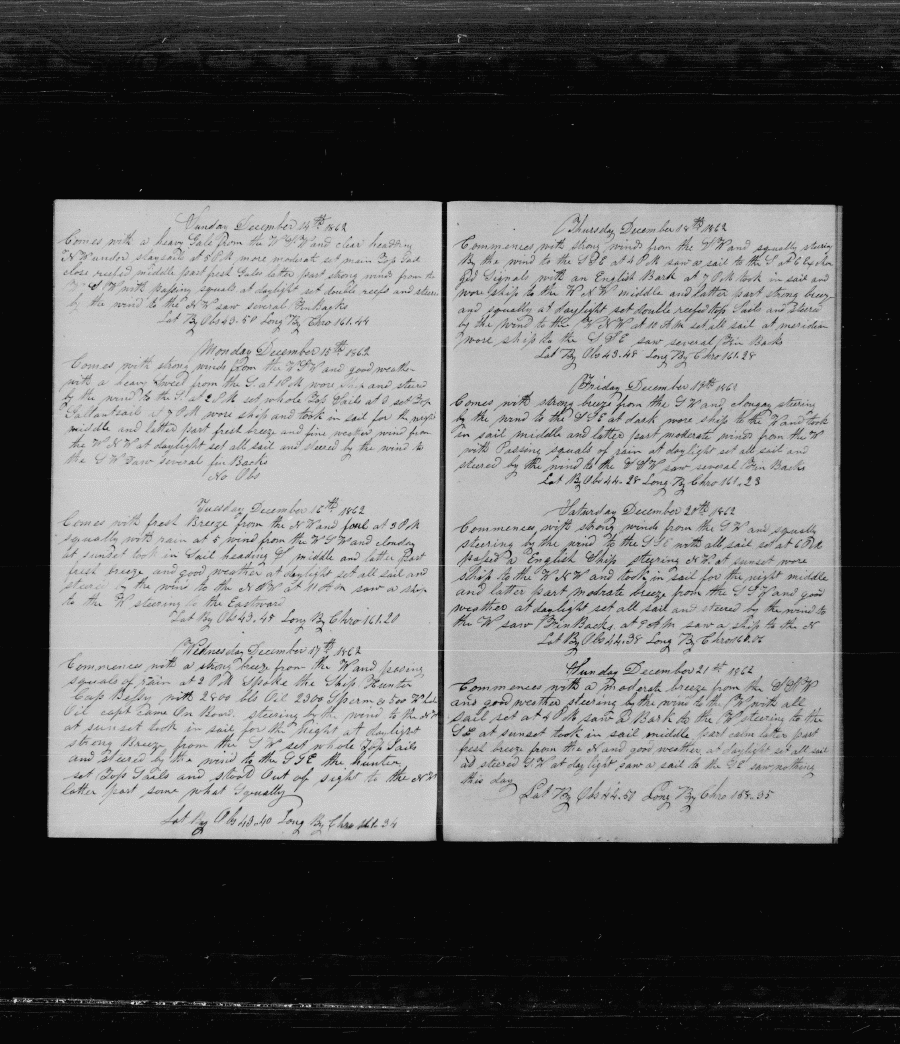 Sunday December 14th 1862
Comes with a heavy Gale from the W S W and clear heading
N W under staysail at 8 P M more moderate set main Top Sail
close reefed middle part fresh Gales latter part strong wind from the
W S W with passing squals at daylight set double reefs and steered
by the wind to the N W saw several Fin Backs
Lat By Obs 43.50 Long By Chro 161.44
Monday December 15th 1862
Comes with strong winds from the W S W and good weather
with a heavy Swell from the S at 1 P M wore Ship and steered
by the wind to the S at 2 P M set whole Top Sails at 3 set Top
Gallantsails at 7 P M wore ship and took in sail for the night
middle and latter part fresh breeze and fine weather wind from
the W N W at daylight set all sail and steered by the wind to
the S W Saw several fin Backs
No Obs
Tuesday December 16th 1862
Comes with fresh Breeze from the N W and foul at 3 P M
squally with rain at 5 wind from the W S W and clouday
at sundet took in Sail heading S middle and latter Part
fresh breeze and good weather at daylight set all sail and
steered by the wind to the N N W at 11 A M saw a ship
to the W steering to the Eastward
Lat By Obs 43.48 Long By Chro 161.20
Wednesday December 17th 1862
Commences with a strong breeze from the W and passing
squals of rain at 2 P M Spoke the Ship Hunter
Capt with 2800 bls Oil 2300 Sperm & 500 Whale
Oil capt came On Board steering by the wind to the N W
at sunset took in sail for the night at daylight
strong Breeze from the S W set whole Top Sails
and steered by the wind to the S S E the hunter
set Top Sails and stood Out of sight to the N W
latter part some what Squally
Lat By Obs 43.40 Long By Chro 161.34
Thursday December 18th 1862
Commences with strong winds from the S W and squally steering
By the wind to the S S E at 4 P M saw a sail to the S
ged Signals with an English Bark at 7 P M took in sail and
wore ship to the W N W middle and latter part strong breeze
and squally at daylight set double reefed top Sails and steered
by the wind to the W N W at 10 A M set all sail at meridian
wore ship to the S S E saw several Fin Backs
Lat By Obs 43.48 Long By Chro 161.28
Friday December 19th 1862
Comes with strong breeze from the S W and clougay steering
by the wind to the S S E at dark wore ship to the W and took
in sail middle and latter part moderate winds from the W
with Passing squals of rain at daylight set all sail and
steered by the wind to the S S W saw several Fin Backs
Lat By Obs 44.28 Long By Chro 161.23
Saturday December 20th 1862
Commences with strong winds from the S W and squally
steering by the wind to the S S E with all sail set at 6 P M
passed a English Ship steering N W at sunset wore
ship to the W N W and took in sail for the night middle
and latter part modrate breeze from the S S W and good
weather at daylight set all sail and steered by the wind to
the W saw Fin Backs at 9 A M saw a ship to the N
Lat By Obs 44.38 Long By Chro 160.06
Sunday December 21st 1862
Commences with a moderate breeze from the S S W
and good weather steering by the wind to the W with all
sail set at 4 P M saw a Bark to the W steering to the
S E at sunset took in sail middle part calm latter part
fresh breeze from the N and good weather at daylight set all sail
ad steered S W at day light saw a sail to the S E saw nothing
this day
Lat By Obs 44.50 Long By Chro 158.35